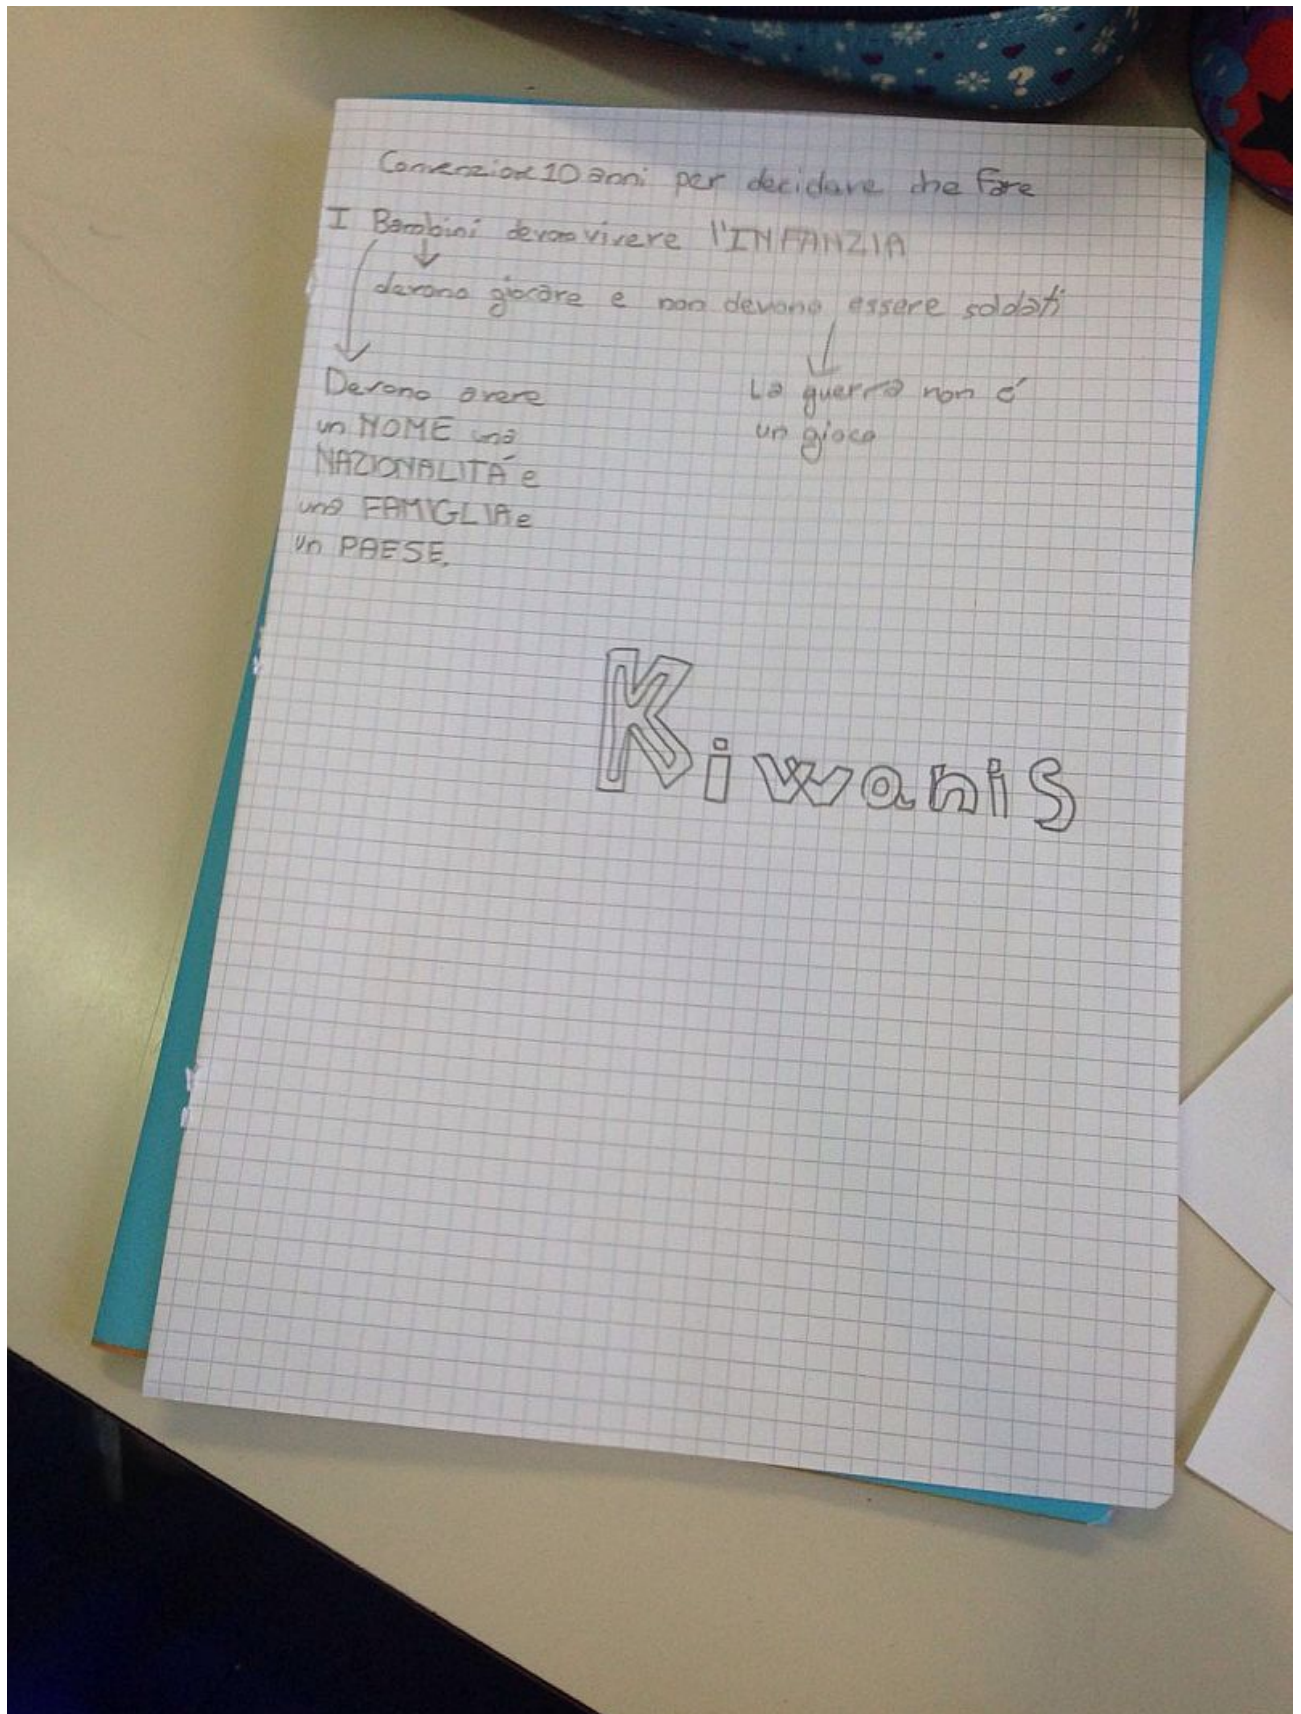 Convenzione 10 anni per decidare che fare
I Bambini devono vivere l'INFANZIA
devono giocare e non devono essere soldati
Devono avere
un NOME una
NAZIONALITÁ e
una FAMIGLIA e
un PAESE.
La guerra non é
un gioco
Kiwanis